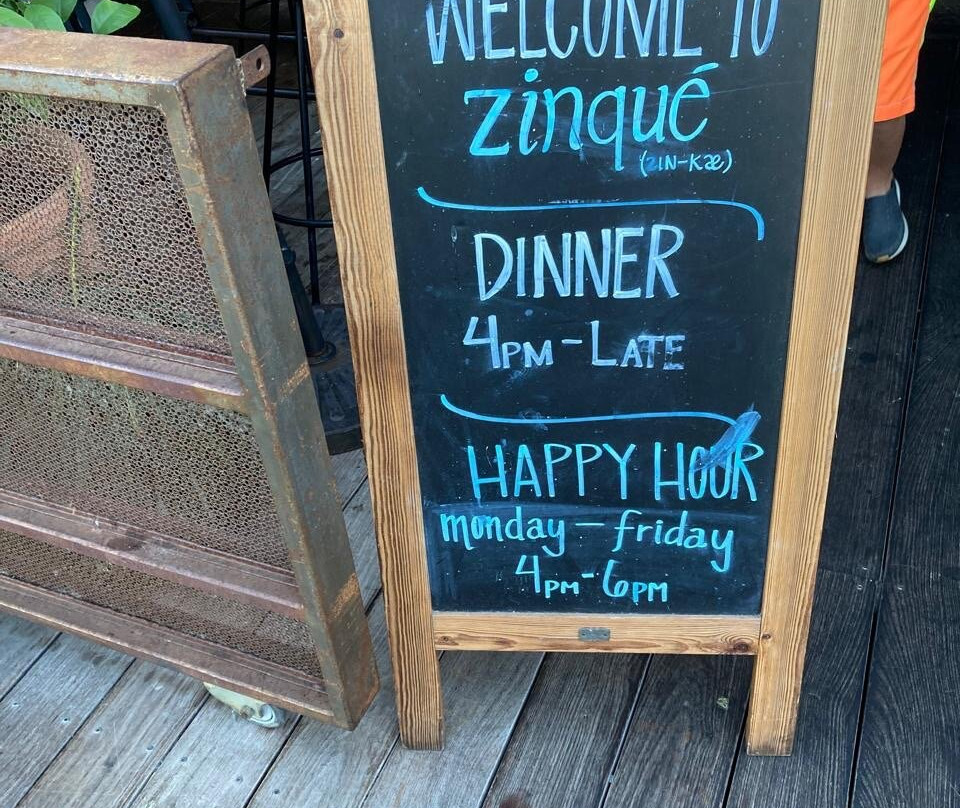 WELCOME TO
zinqué
(ZIN-Kæ)
DINNER
4PM - LATE
HAPPY HOUR
monday - friday
4PM - 6PM